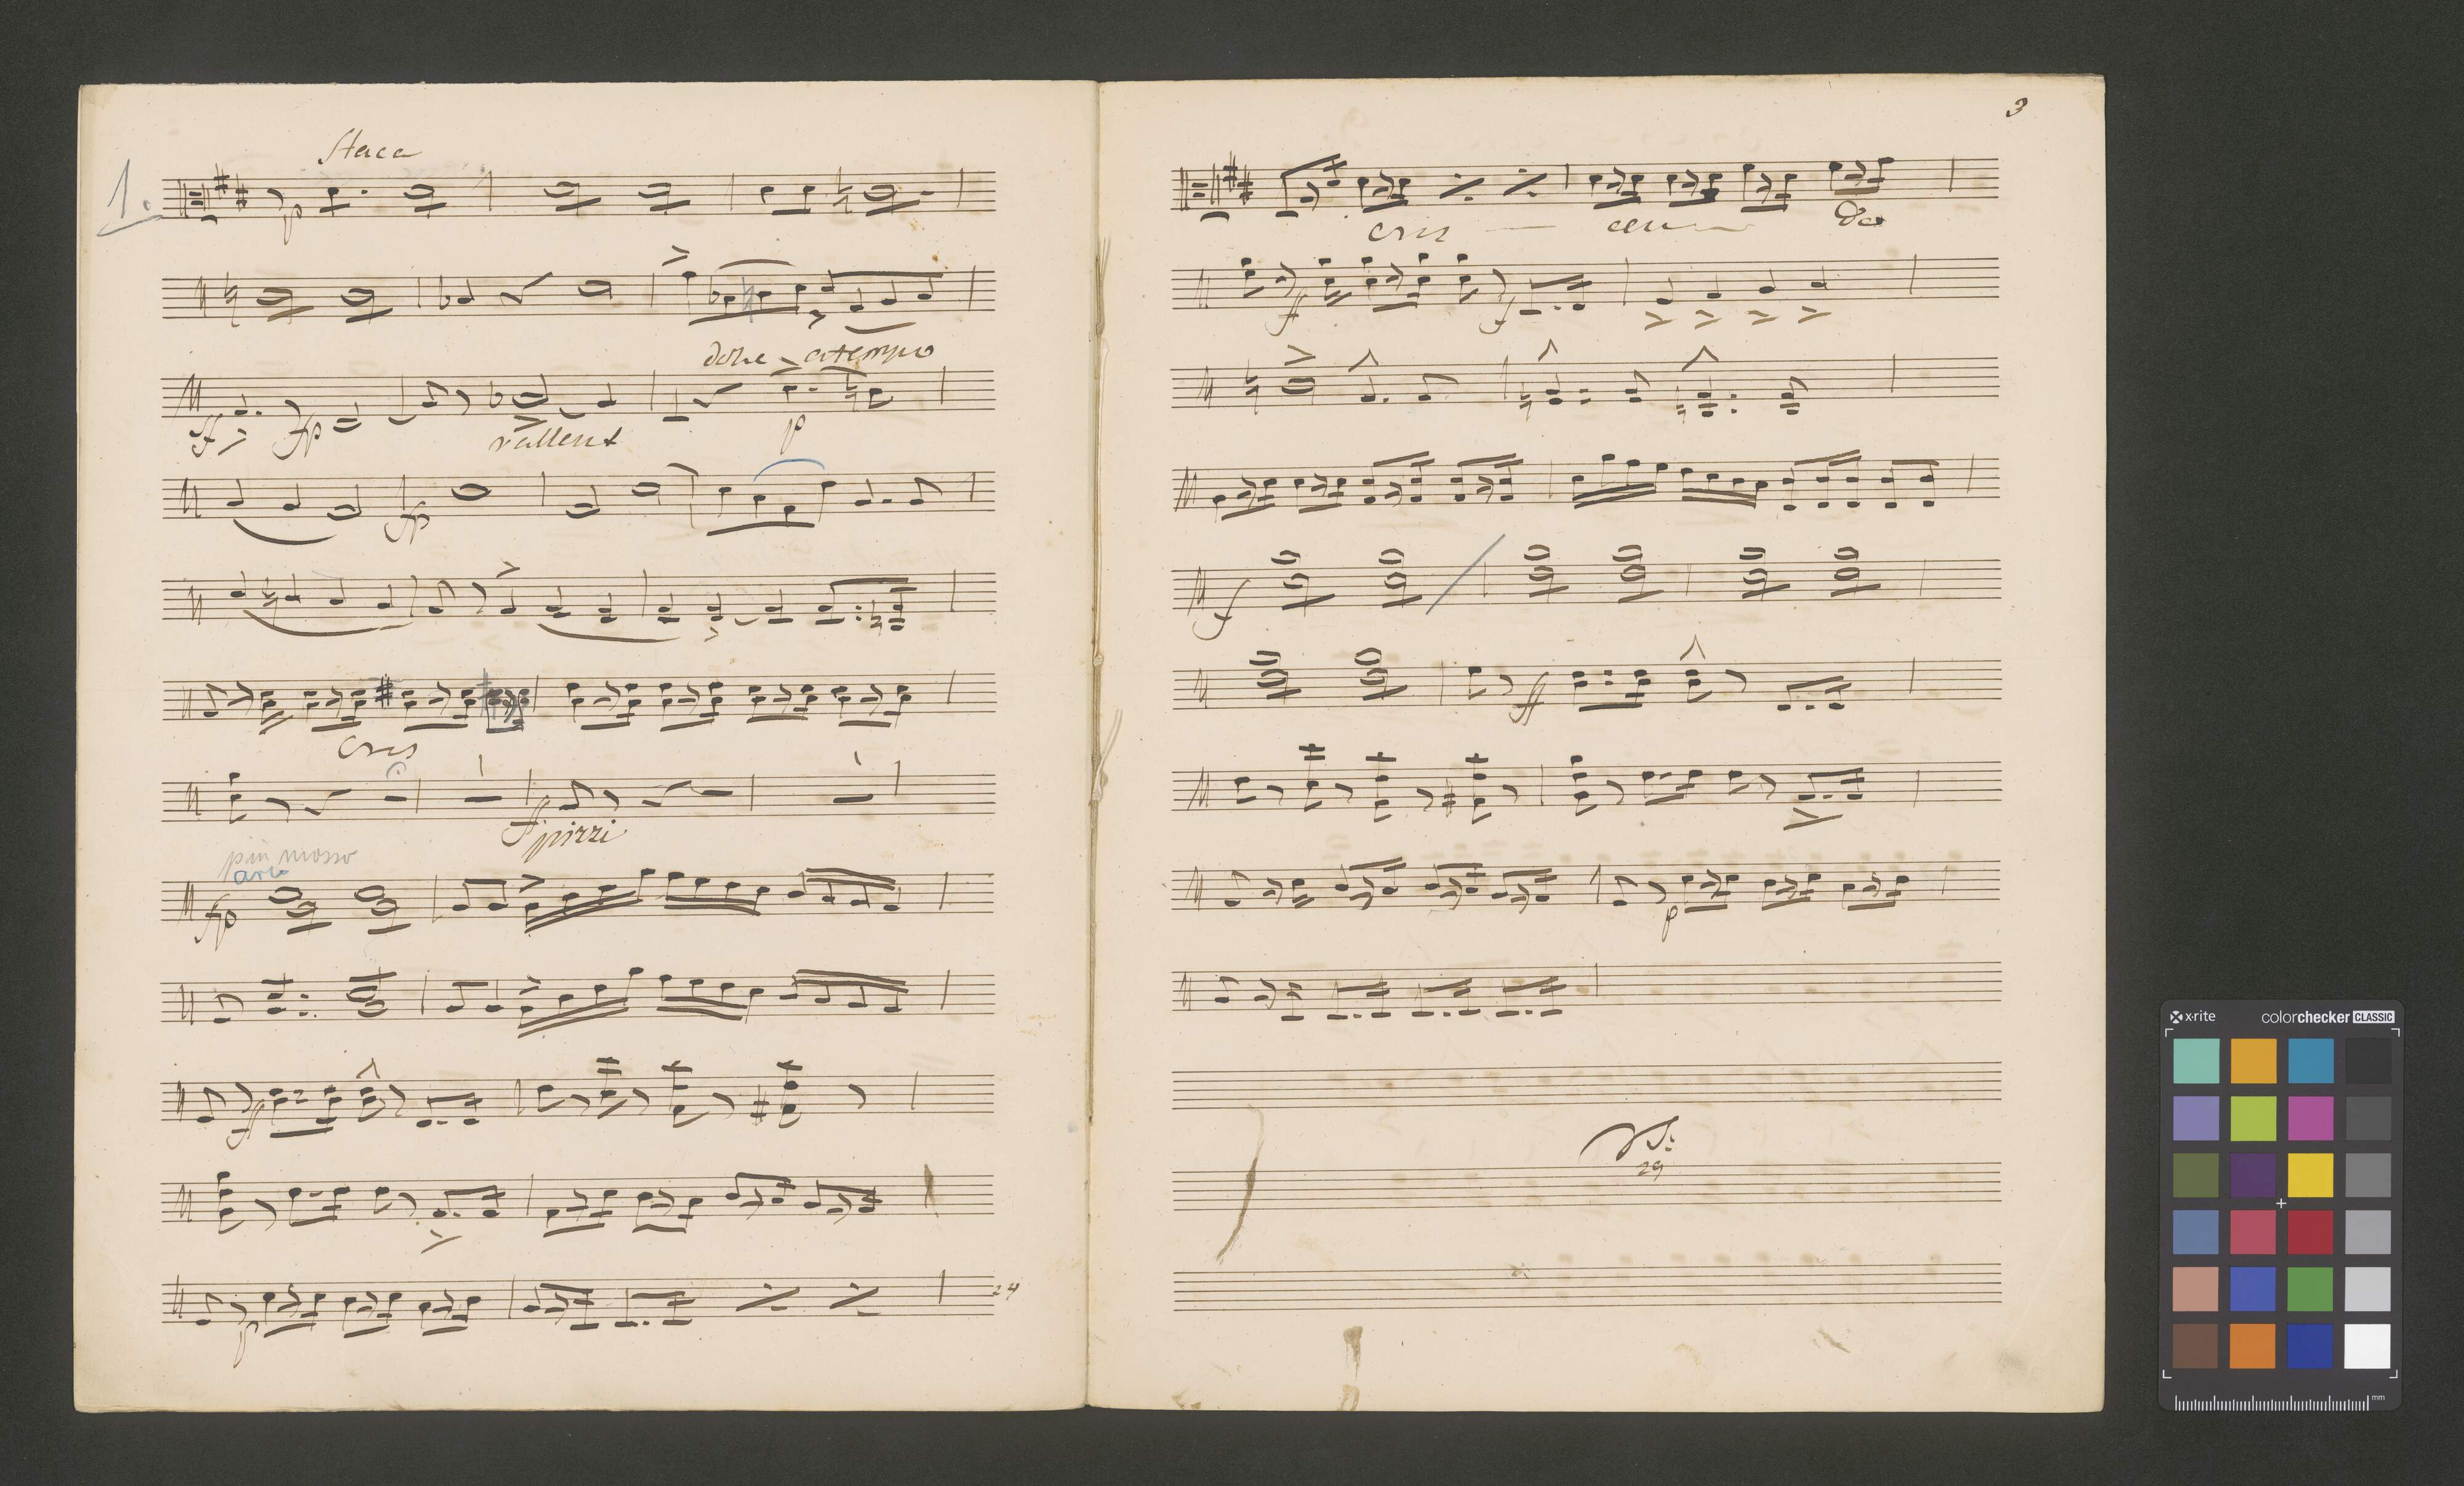 1.
Stacc
p
dolce atempo
ff fp rallent p
fp
cres
ff pizzi
piu mosso
arco
fp
ff
p
24
3
cres — cen — do
ff f
f
ff
p
VS:
29
x-rite colorchecker CLASSIC
mm